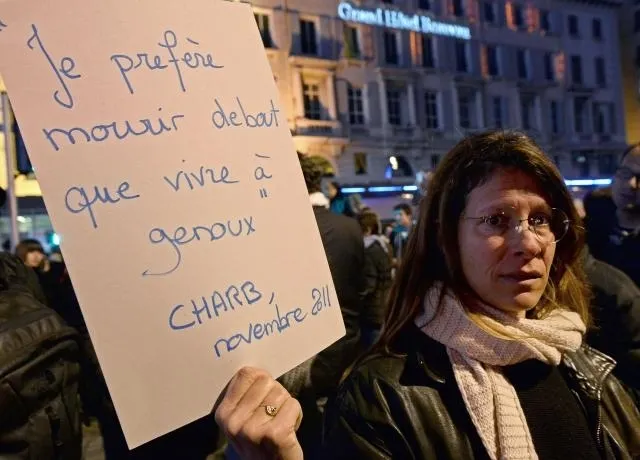 Grand Hôtel Beauvau
Je préfère
mourir debout
que vivre à
genoux "
CHARB,
novembre 2011